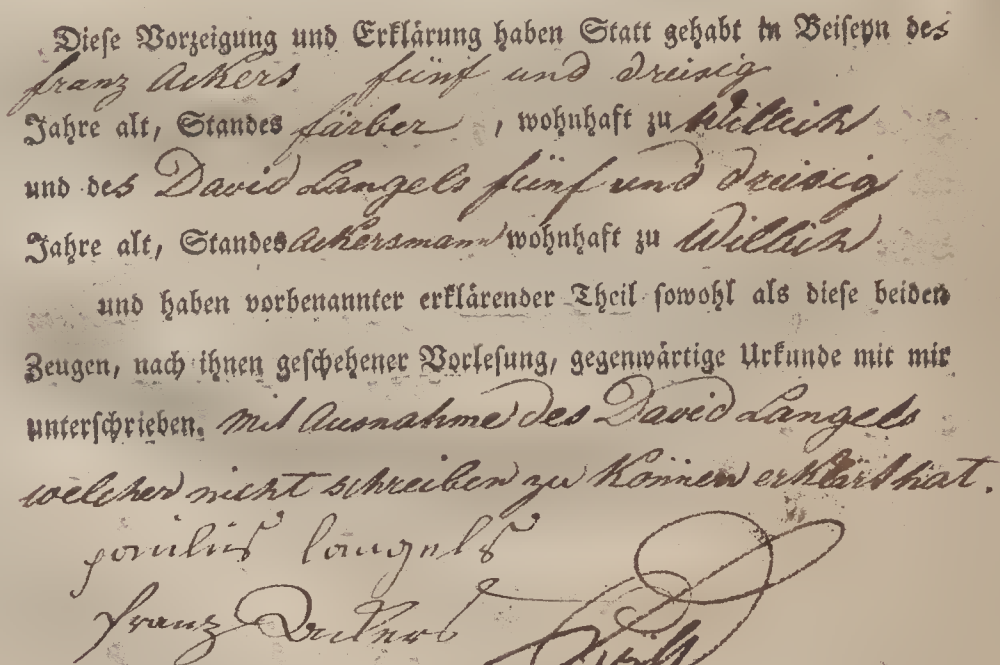 Diese Vorzeigung und Erklärung haben Statt gehabt in Beiseyn des
franz Ackers fünf und dreisig
Jahre alt, Standes färber, wohnhaft zu Willich
und des David Langels fünf und dreisig
Jahre alt, Standes Ackersmann wohnhaft zu Willich
und haben vorbenannter erklärender Theil sowohl als diese beiden
Zeugen, nach ihnen geschehener Vorlesung, gegenwärtige Urkunde mit mir
unterschrieben. mit Ausnahme des David Langels
welcher nicht schreiben zu können erklärt hat.
paulus langels
franz Ackers